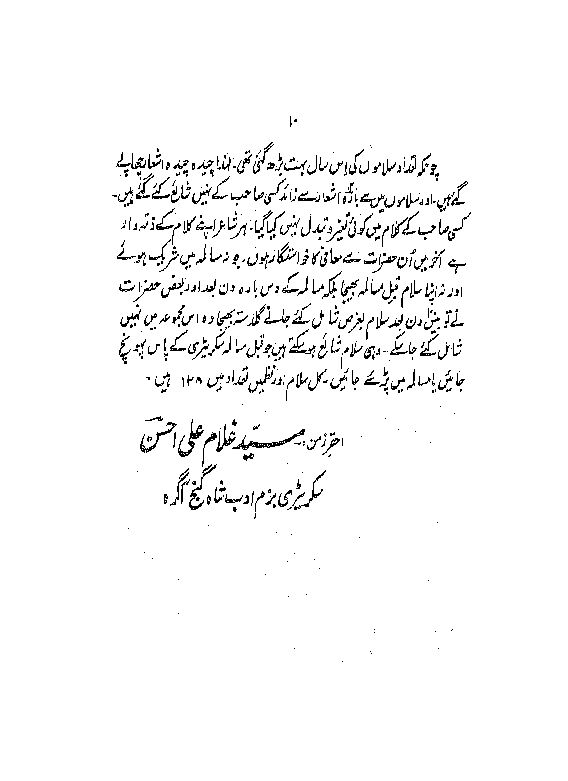 ۱۰
چونکہ تعداد سلاموں کی اس سال بہت بڑھ گئی تھی۔ لہٰذا چیدہ چیدہ اشعار چھاپے
گئے ہیں۔ اور سلاموں میں سے بارہ اشعار سے زائد کسی صاحب کے نہیں شائع کئے گئے ہیں۔
کسی صاحب کے کلام میں کوئی تغیر و تبدل نہیں کیا گیا۔ ہر شاعر اپنے کلام کے ذمہ دار
ہے آخر میں اُن حضرات سے معافی کا خواستگار ہوں۔ جو نہ مسالمہ میں شریک ہوئے
اور نہ اپنا سلام قبل مسالمہ بھیجا بلکہ مسالمہ کے دس بارہ دن بعد اور بعض حضرات
نے تو بیس دن بعد سلام بغرض شامل کئے جانے گلدستہ بھیجا وہ اس مجموعہ میں نہیں
شامل کئے جا سکے۔ وہی سلام شائع ہو سکتے ہیں جو قبل مسالمہ سکریٹری کے پاس پہونچ
جائیں یا مسالمہ میں پڑھے جائیں۔ کل سلام اور نظمیں تعداد میں ۱۳۸ ہیں۔
احقر زمن:۔ سید غلام علی احسن
سکریٹری بزم ادب شاہ گنج آگرہ